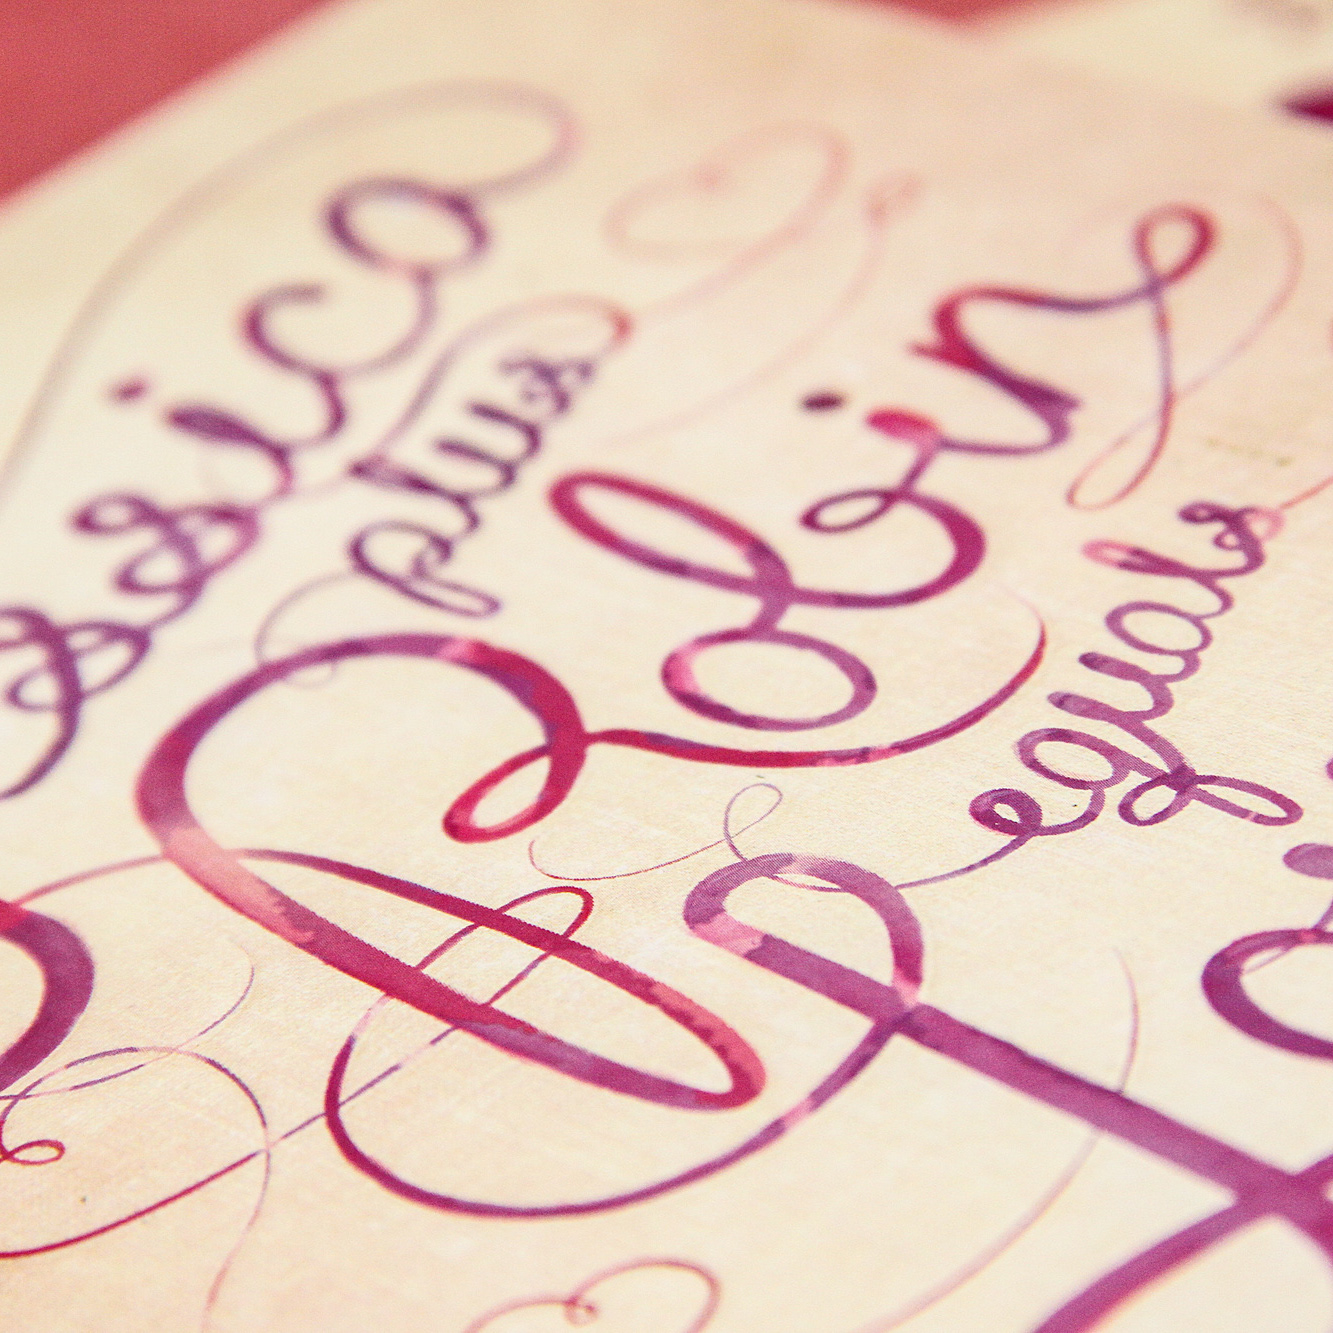 ssica
plus
Colin
equals